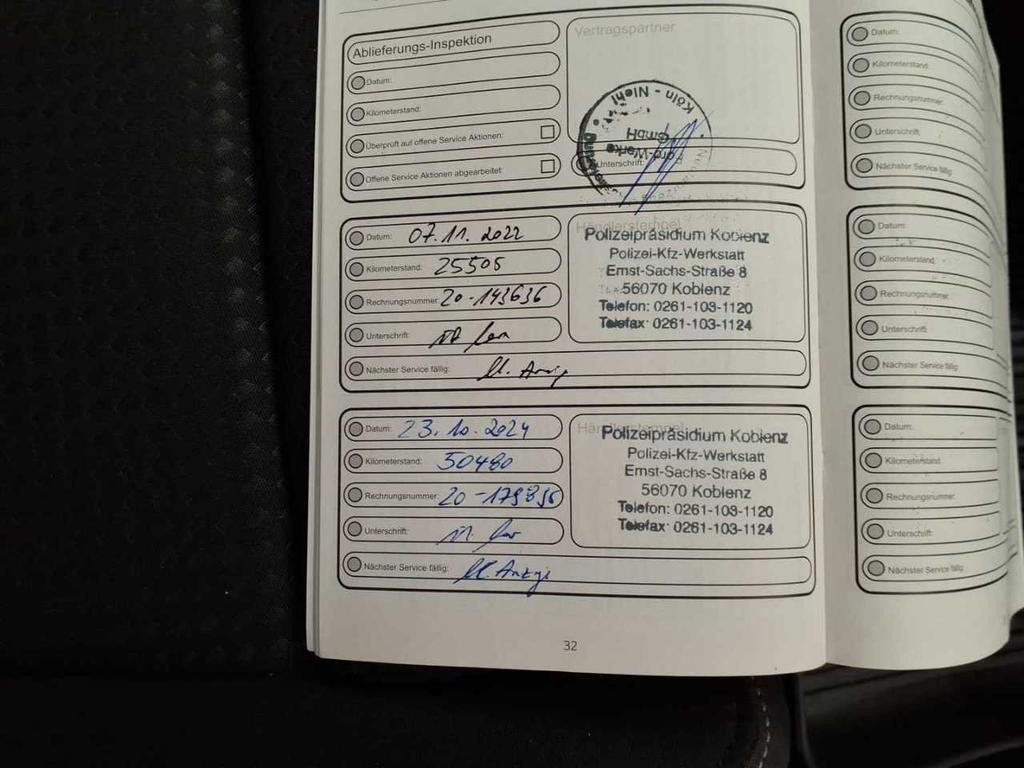 Ablieferungs-Inspektion
Datum:
Kilometerstand:
Überprüft auf offene Service Aktionen:
Offene Service Aktionen abgearbeitet
Vertragspartner
Unterschrift:
Köln - Niehl
GmbH
Ford-Werke
Datum: 07.11.2022
Kilometerstand: 25505
Rechnungsnummer: 20-143636
Unterschrift:
Nächster Service fällig:
Händlerstempel
Polizeipräsidium Koblenz
Polizei-Kfz-Werkstatt
Ernst-Sachs-Straße 8
56070 Koblenz
Telefon: 0261-103-1120
Telefax: 0261-103-1124
Datum: 23.10.2024
Kilometerstand: 50480
Rechnungsnummer: 20-179836
Unterschrift:
Nächster Service fällig:
Händlerstempel
Polizeipräsidium Koblenz
Polizei-Kfz-Werkstatt
Ernst-Sachs-Straße 8
56070 Koblenz
Telefon: 0261-103-1120
Telefax: 0261-103-1124
32
Datum:
Kilometerstand:
Rechnungsnummer:
Unterschrift:
Nächster Service fällig
Datum:
Kilometerstand:
Rechnungsnummer:
Unterschrift:
Nächster Service fällig
Datum:
Kilometerstand:
Rechnungsnummer:
Unterschrift:
Nächster Service fällig